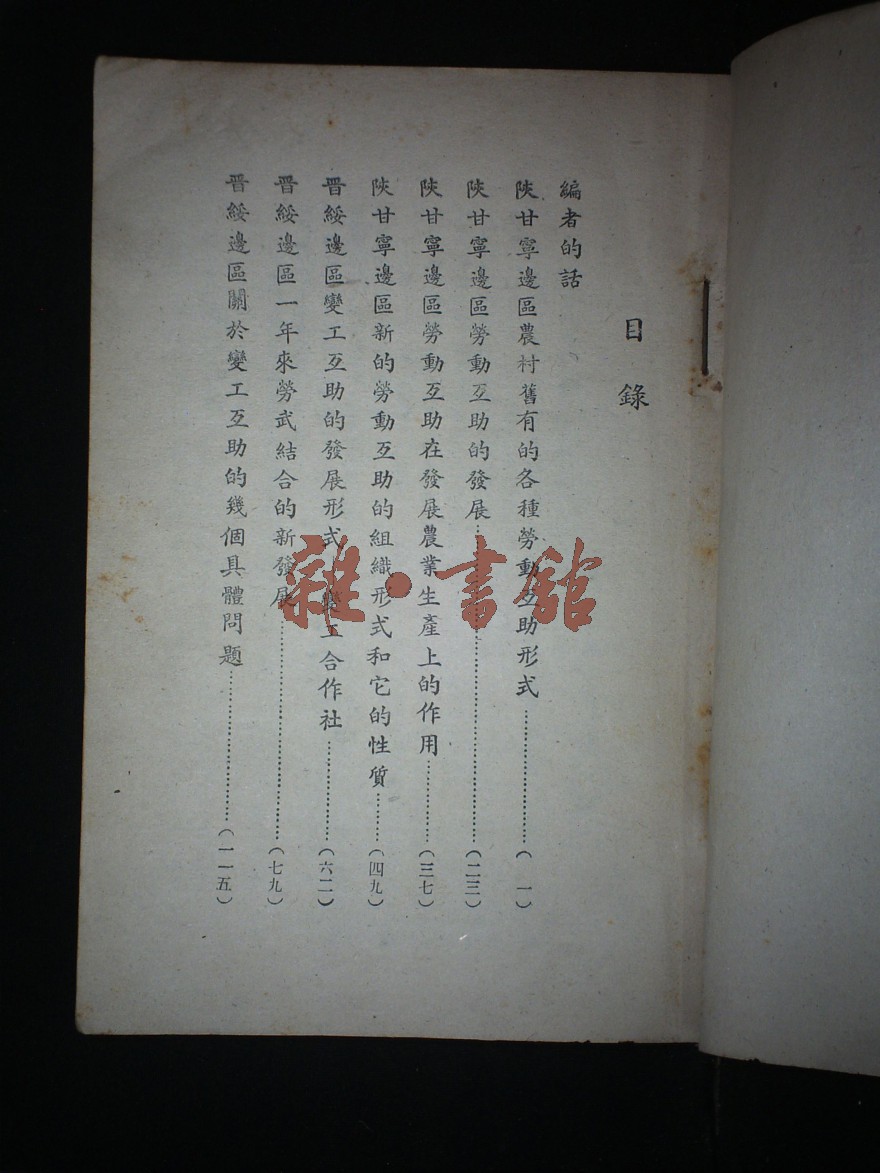 目錄
編者的話
陝甘寧邊區農村舊有的各種勞動互助形式……………………(一)
陝甘寧邊區勞動互助的發展……………………(二三)
陝甘寧邊區勞動互助在發展農業生產上的作用……………(三七)
陝甘寧邊區新的勞動互助的組織形式和它的性質………(四九)
晋綏邊區變工互助的發展形式—變工合作社………………(六二)
晋綏邊區一年來勞武結合的新發展……………………(七九)
晋綏邊區關於變工互助的幾個具體問題……………………(一一五)
雜·書館